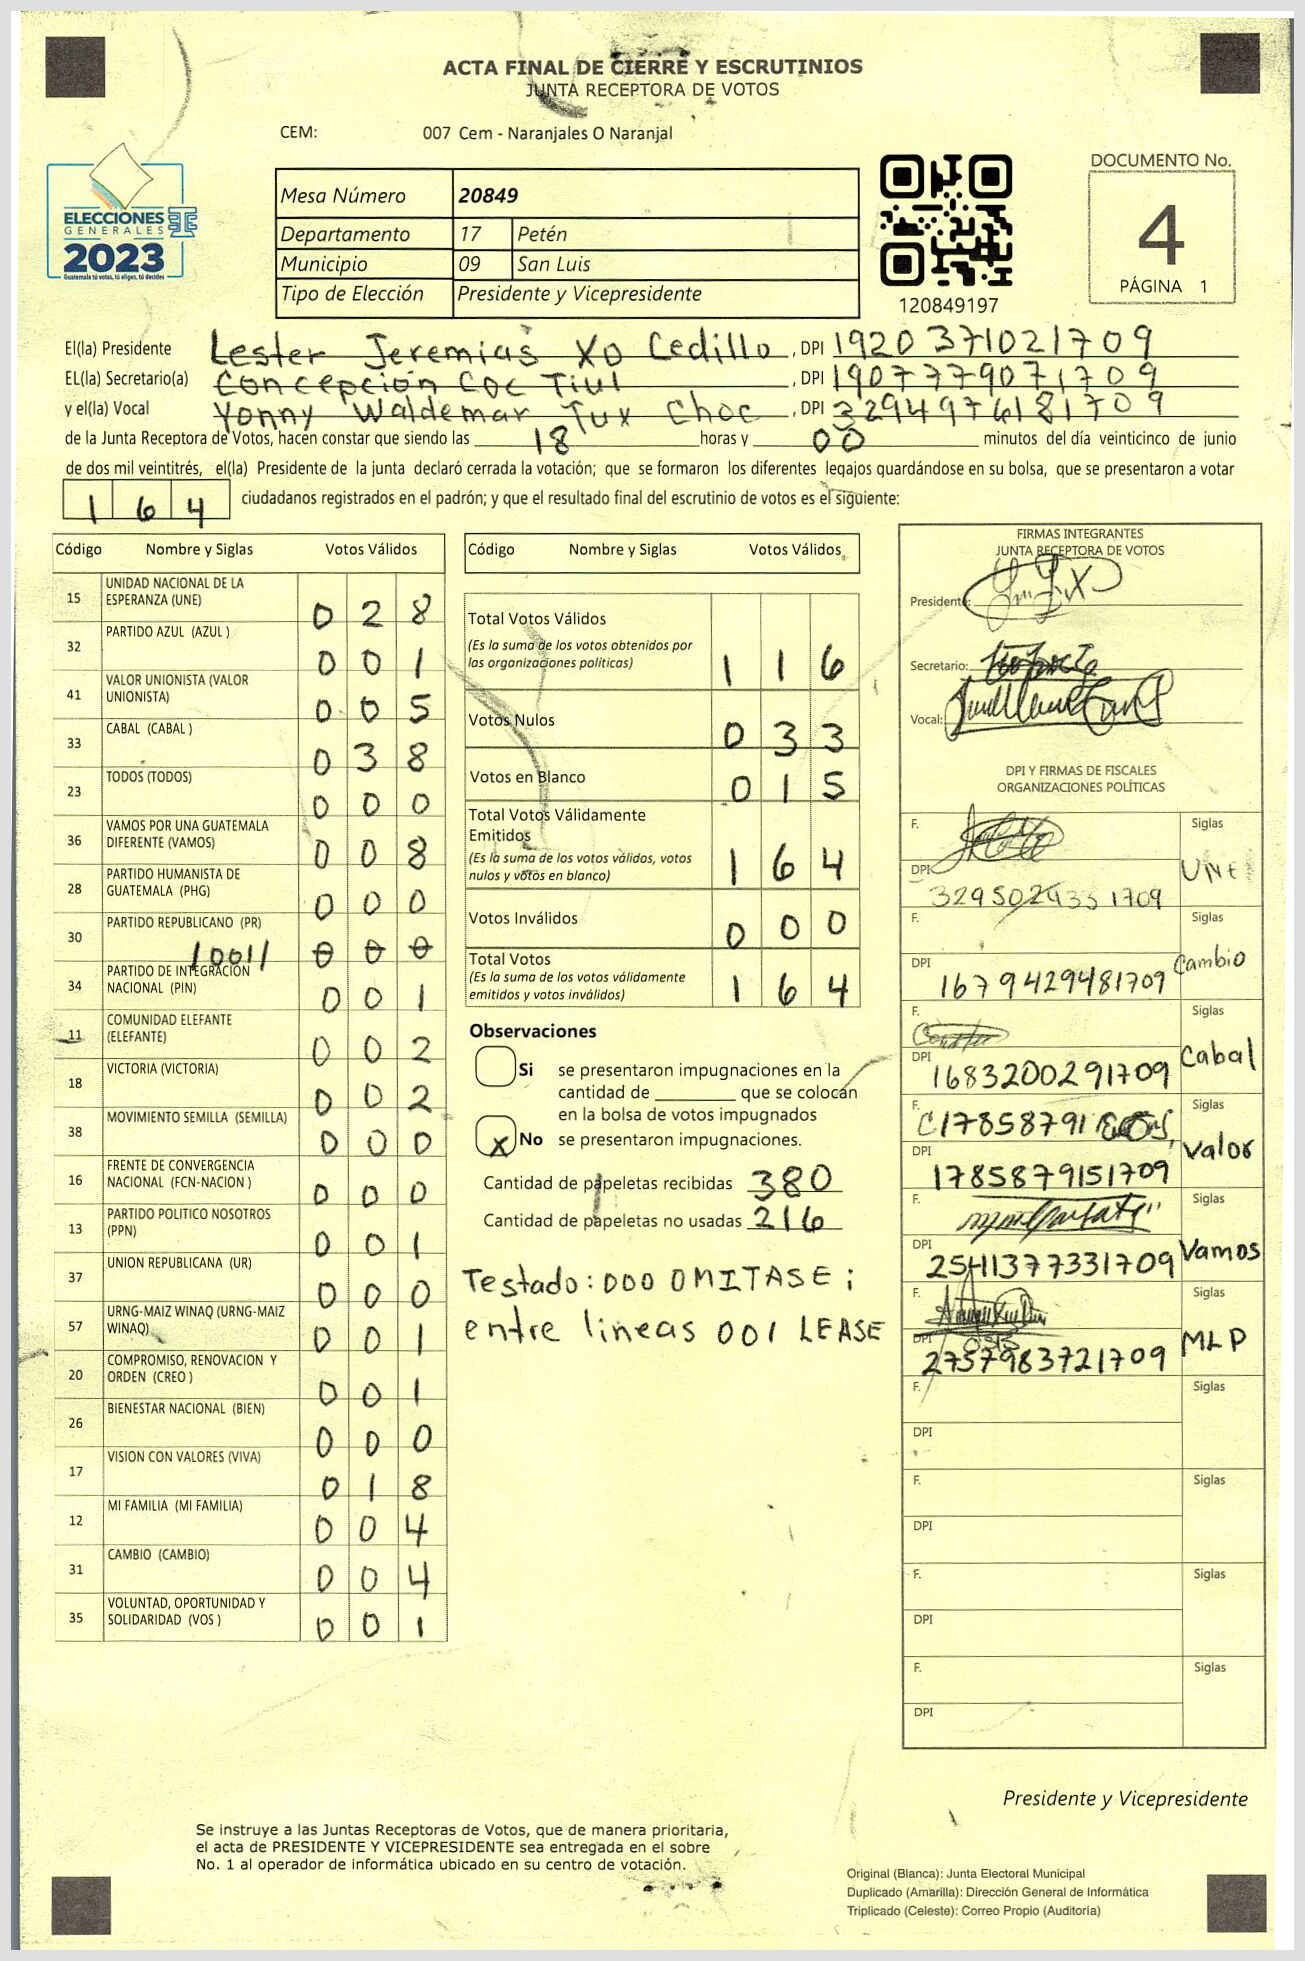 ACTA FINAL DE CIERRE Y ESCRUTINIOS
JUNTA RECEPTORA DE VOTOS
CEM: 007 Cem - Naranjales O Naranjal
ELECCIONES
GENERALES
2023
Guatemala tú votas, tú eliges, tú decides
Mesa Número 20849
Departamento 17 Petén
Municipio 09 San Luis
Tipo de Elección Presidente y Vicepresidente
120849197
DOCUMENTO No.
4
PÁGINA 1
El(la) Presidente Lester Jeremias Xo Cedillo, DPI 1920371021709
EL(la) Secretario(a) Concepción Coc Tiul, DPI 1907779071709
y el(la) Vocal Yonny Waldemar Tux Choc, DPI 3294976181709
de la Junta Receptora de Votos, hacen constar que siendo las 18 horas y 00 minutos del día veinticinco de junio
de dos mil veintitrés, el(la) Presidente de la junta declaró cerrada la votación; que se formaron los diferentes legajos guardándose en su bolsa, que se presentaron a votar
164 ciudadanos registrados en el padrón; y que el resultado final del escrutinio de votos es el siguiente:
Código Nombre y Siglas Votos Válidos
15 UNIDAD NACIONAL DE LA ESPERANZA (UNE) 0 2 8
32 PARTIDO AZUL (AZUL ) 0 0 1
41 VALOR UNIONISTA (VALOR UNIONISTA) 0 0 5
33 CABAL (CABAL ) 0 3 8
23 TODOS (TODOS) 0 0 0
36 VAMOS POR UNA GUATEMALA DIFERENTE (VAMOS) 0 0 8
28 PARTIDO HUMANISTA DE GUATEMALA (PHG) 0 0 0
30 PARTIDO REPUBLICANO (PR) 0 0 0
10011
34 PARTIDO DE INTEGRACION NACIONAL (PIN) 0 0 1
11 COMUNIDAD ELEFANTE (ELEFANTE) 0 0 2
18 VICTORIA (VICTORIA) 0 0 2
38 MOVIMIENTO SEMILLA (SEMILLA) 0 0 0
16 FRENTE DE CONVERGENCIA NACIONAL (FCN-NACION ) 0 0 0
13 PARTIDO POLITICO NOSOTROS (PPN) 0 0 1
37 UNION REPUBLICANA (UR) 0 0 0
57 URNG-MAIZ WINAQ (URNG-MAIZ WINAQ) 0 0 1
20 COMPROMISO, RENOVACION Y ORDEN (CREO ) 0 0 1
26 BIENESTAR NACIONAL (BIEN) 0 0 0
17 VISION CON VALORES (VIVA) 0 1 8
12 MI FAMILIA (MI FAMILIA) 0 0 4
31 CAMBIO (CAMBIO) 0 0 4
35 VOLUNTAD, OPORTUNIDAD Y SOLIDARIDAD (VOS ) 0 0 1
Código Nombre y Siglas Votos Válidos
Total Votos Válidos 1 1 6
(Es la suma de los votos obtenidos por
las organizaciones políticas)
Votos Nulos 0 3 3
Votos en Blanco 0 1 5
Total Votos Válidamente
Emitidos 1 6 4
(Es la suma de los votos válidos, votos
nulos y votos en blanco)
Votos Inválidos 0 0 0
Total Votos 1 6 4
(Es la suma de los votos válidamente
emitidos y votos inválidos)
Observaciones
Si se presentaron impugnaciones en la
cantidad de ________ que se colocan
en la bolsa de votos impugnados
x No se presentaron impugnaciones.
Cantidad de papeletas recibidas 380
Cantidad de papeletas no usadas 216
Testado: 000 OMITASE;
entre lineas 001 LEASE
FIRMAS INTEGRANTES
JUNTA RECEPTORA DE VOTOS
Presidente:
Secretario:
Vocal:
DPI Y FIRMAS DE FISCALES
ORGANIZACIONES POLÍTICAS
F. Siglas
DPI UNE
F. Siglas
DPI 1679429481709 Cambio
F. Siglas
DPI 1683200291709 Cabal
F. Siglas
DPI 1785879151709 Valor
F. Siglas
DPI 2541377331709 Vamos
F. Siglas
DPI 2757983721709 MLP
F. Siglas
DPI
F. Siglas
DPI
F. Siglas
DPI
F. Siglas
DPI
Presidente y Vicepresidente
Se instruye a las Juntas Receptoras de Votos, que de manera prioritaria,
el acta de PRESIDENTE Y VICEPRESIDENTE sea entregada en el sobre
No. 1 al operador de informática ubicado en su centro de votación.
Original (Blanca): Junta Electoral Municipal
Duplicado (Amarilla): Dirección General de Informática
Triplicado (Celeste): Correo Propio (Auditoría)